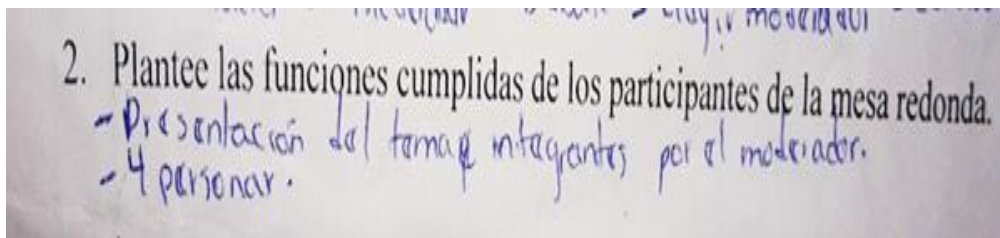 moderador
2. Plantee las funciones cumplidas de los participantes de la mesa redonda.
- Presentación del tema e integrantes por el moderador.
- 4 personar.